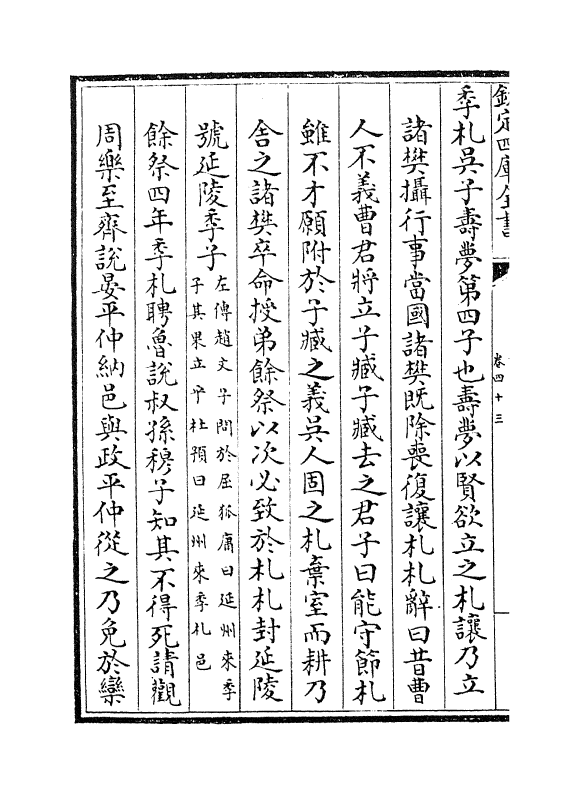 欽定四庫全書
卷四十三
季札吳子壽夢第四子也壽夢以賢欲立之札讓乃立
諸樊攝行事當國諸樊既除喪復讓札札辭曰昔曹
人不義曹君將立子臧子臧去之君子曰能守節札
雖不才願附於子臧之義吳人固之札棄室而耕乃
舍之諸樊卒命授弟餘祭以次必致於札札封延陵
號延陵季子左傳趙文子問於屈狐庸曰延州來季
子其果立乎杜預曰延州來季札邑
餘祭四年季札聘魯說叔孫穆子知其不得死請觀
周樂至齊說晏平仲納邑與政平仲從之乃免於欒